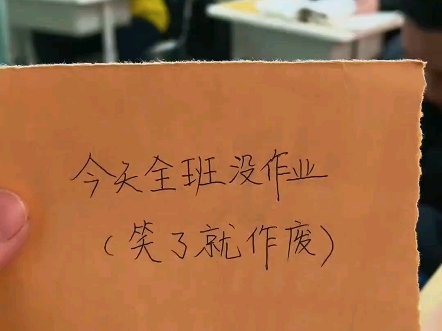 今天全班没作业
(笑了就作废)